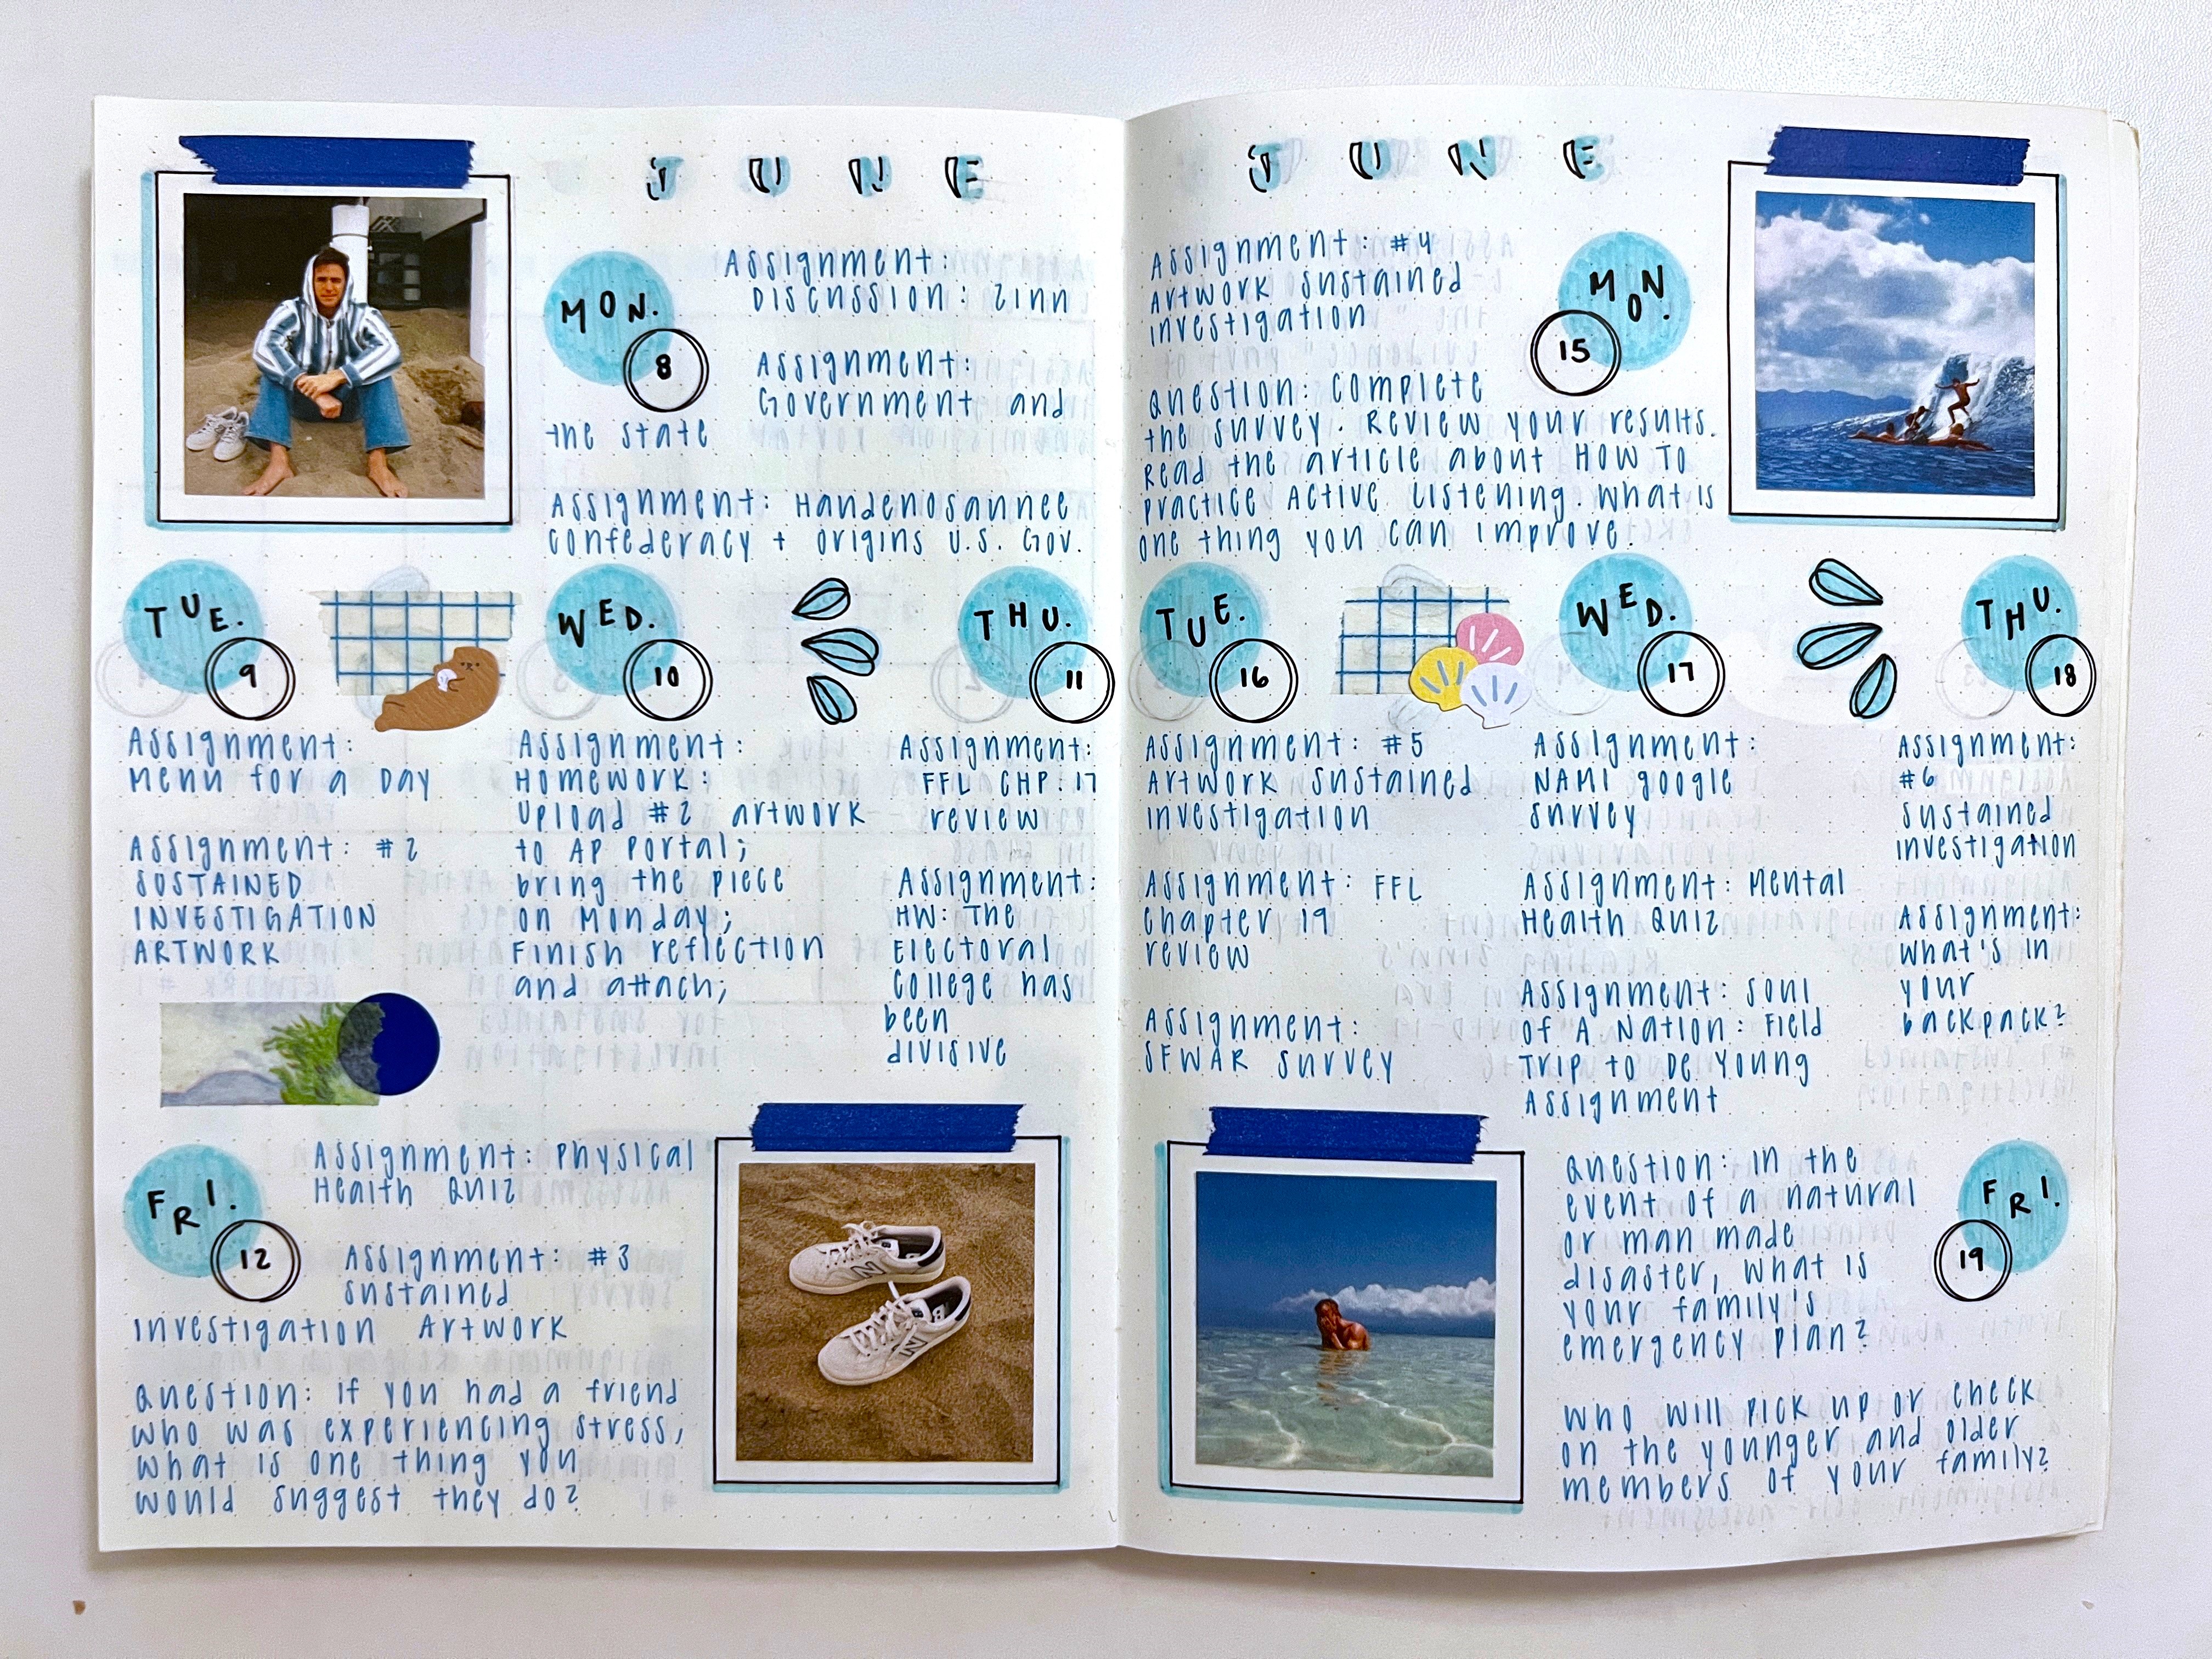 JUNE
MON.
8
Assignment:
Discussion: Zinn
Assignment:
Government and
the state
Assignment: Handenosannee
Confederacy + origins U.S. Gov.
TUE.
9
Assignment:
Menu for a Day
Assignment: #2
SUSTAINED
INVESTIGATION
ARTWORK
WED.
10
Assignment:
Homework:
Upload #2 artwork
to AP Portal;
bring the piece
on Monday;
Finish reflection
and attach;
THU.
11
Assignment:
FFL CHP. 17
review
Assignment:
HW: The
Electoral
College has
been
divisive
FRI.
12
Assignment: Physical
Health Quiz
Assignment: #3
sustained
Investigation Artwork
Question: if you had a friend
who was experiencing stress,
what is one thing you
would suggest they do?
JUNE
Assignment: #4
Artwork sustained
investigation
MON.
15
Question: Complete
the survey. Review your results.
Read the article about HOW TO
Practice Active Listening. What is
one thing you can improve.
TUE.
16
Assignment: #5
Artwork sustained
investigation
Assignment: FFL
Chapter 19
review
Assignment:
SFWAR survey
WED.
17
Assignment:
NAMI google
survey
Assignment: Mental
Health Quiz
Assignment: Soul
of A Nation: Field
Trip to De Young
Assignment
THU.
18
Assignment:
#6
sustained
investigation
Assignment:
what's in
your
backpack?
FRI.
19
Question: in the
event of a natural
or man made
disaster, what is
your family's
emergency plan?
Who will pick up or check
on the younger and older
members of your family?